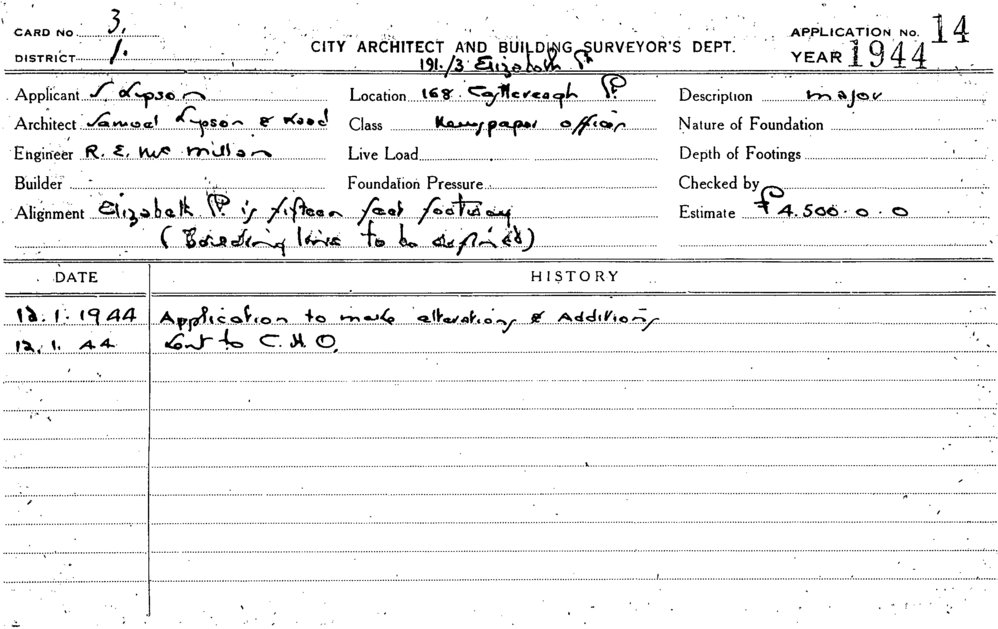 CARD No 3.
DISTRICT 1.
CITY ARCHITECT AND BUILDING SURVEYOR'S DEPT.
APPLICATION No. 14
YEAR 1944
191/3 Elizabeth St
Applicant S. Lipson
Location 168 Castlereagh St.
Description major
Architect Samuel Lipson &
Class Newspaper offices
Nature of Foundation
Engineer R. E. Mc Millan
Live Load
Depth of Footings
Builder
Foundation Pressure
Checked by
Alignment Elizabeth St. is fifteen feet footway
Estimate £4.500.0.0
( Building line to be defined)
DATE HISTORY
12.1.1944 Application to make alterations & Additions
12.1.44 Sent to C.H.O.